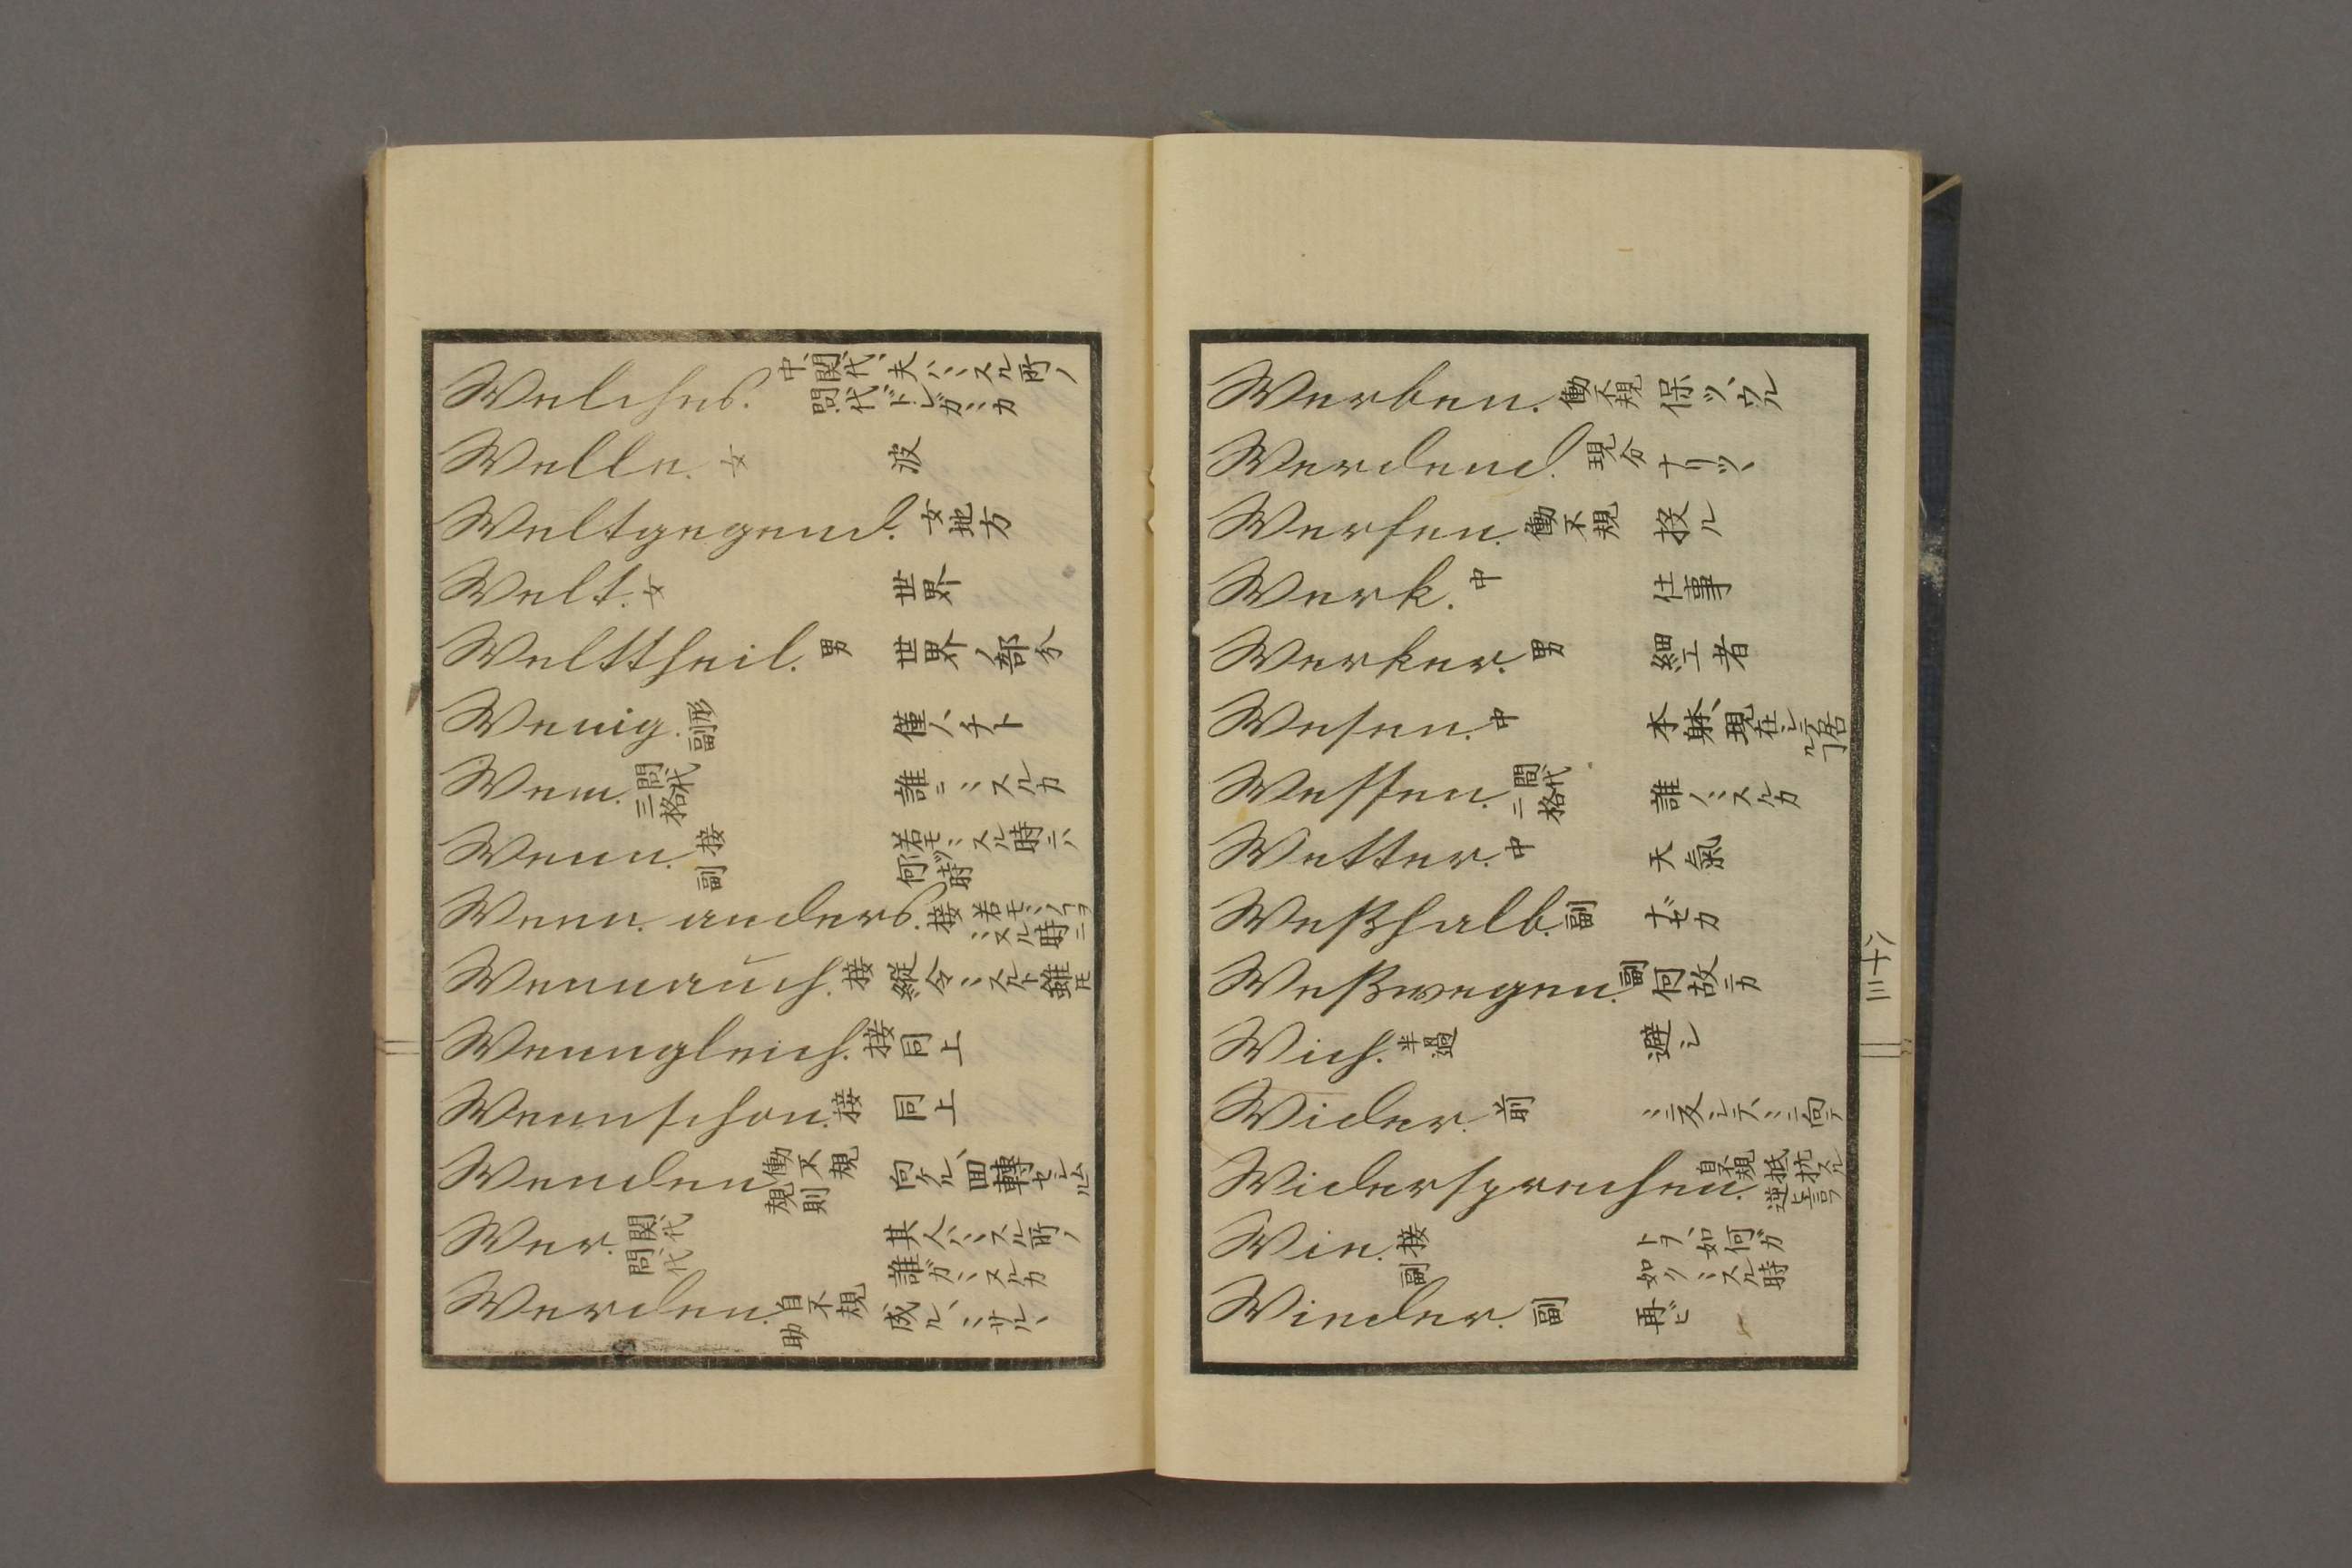 Welches. 中 関代、夫ハ〻スル所ノ
問代 ドレガ〻カ
Welle. 女 波
Weltgegend. 女 地方
Welt. 女 世界
Welttheil. 男 世界ノ部分
Wenig. 副形 僅ハチト
Wem. 問代三格 誰ニ〻スルカ
Wenn. 接 若モシ〻スル時ニハ
副 何時
Wenn anders. 接 若モシ
〻スル時ニ
Wennauch. 接 縦令〻スルト雖ドモ
Wenngleich. 接 同上
Wennschon. 接 同上
Wenden 働不規 規則 向ケル、回轉セシムル
Wer. 関代 其人ハ〻スル所ノ
問代 誰ガ〻スルカ
Werden. 自不規 助 成ル、〻サル、
Werben. 働不規 保ツ、ウル
Werdend. 現分 ナリツヽ
Werfen. 働不規 投ル
Werk. 中 仕事
Werker. 男 細工者
Wesen. 中 本躰、現在シ
Wessen. 問代二格 誰ノ〻スルカ
Wetter. 中 天氣
Weßhalb. 副 ナゼカ
Weßwegen. 副 何故ニカ
Wich. 半過 避シ
Wider. 前 〻ニ反シテ、〻ニ向テ
Widersprechen. 自不規 抵抗スル
逆ヒ言フ
Wie. 接 トヲ、如何ガ
副 如ク〻スル時
Wieder. 副 再ビ
八十三